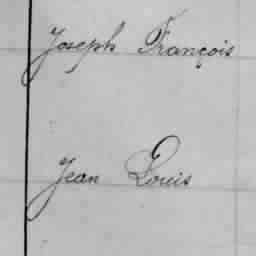 Joseph François
Jean Louis